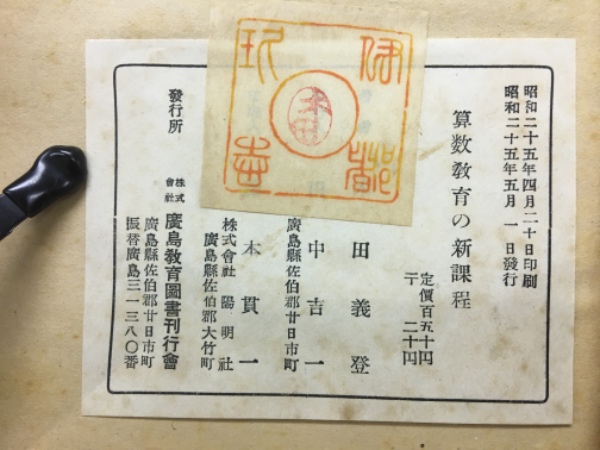 昭和二十五年四月二十日印刷
昭和二十五年五月 一 日發行
算数教育の新課程
定價百五十円
〒 二十円
田義登
廣島縣佐伯郡廿日市町
中吉一
廣島縣佐伯郡大竹町
株式會社陽明社
本貫一
發行所
株式會社 廣島教育圖書刊行會
廣島縣佐伯郡廿日市町
振替廣島三一三八〇番